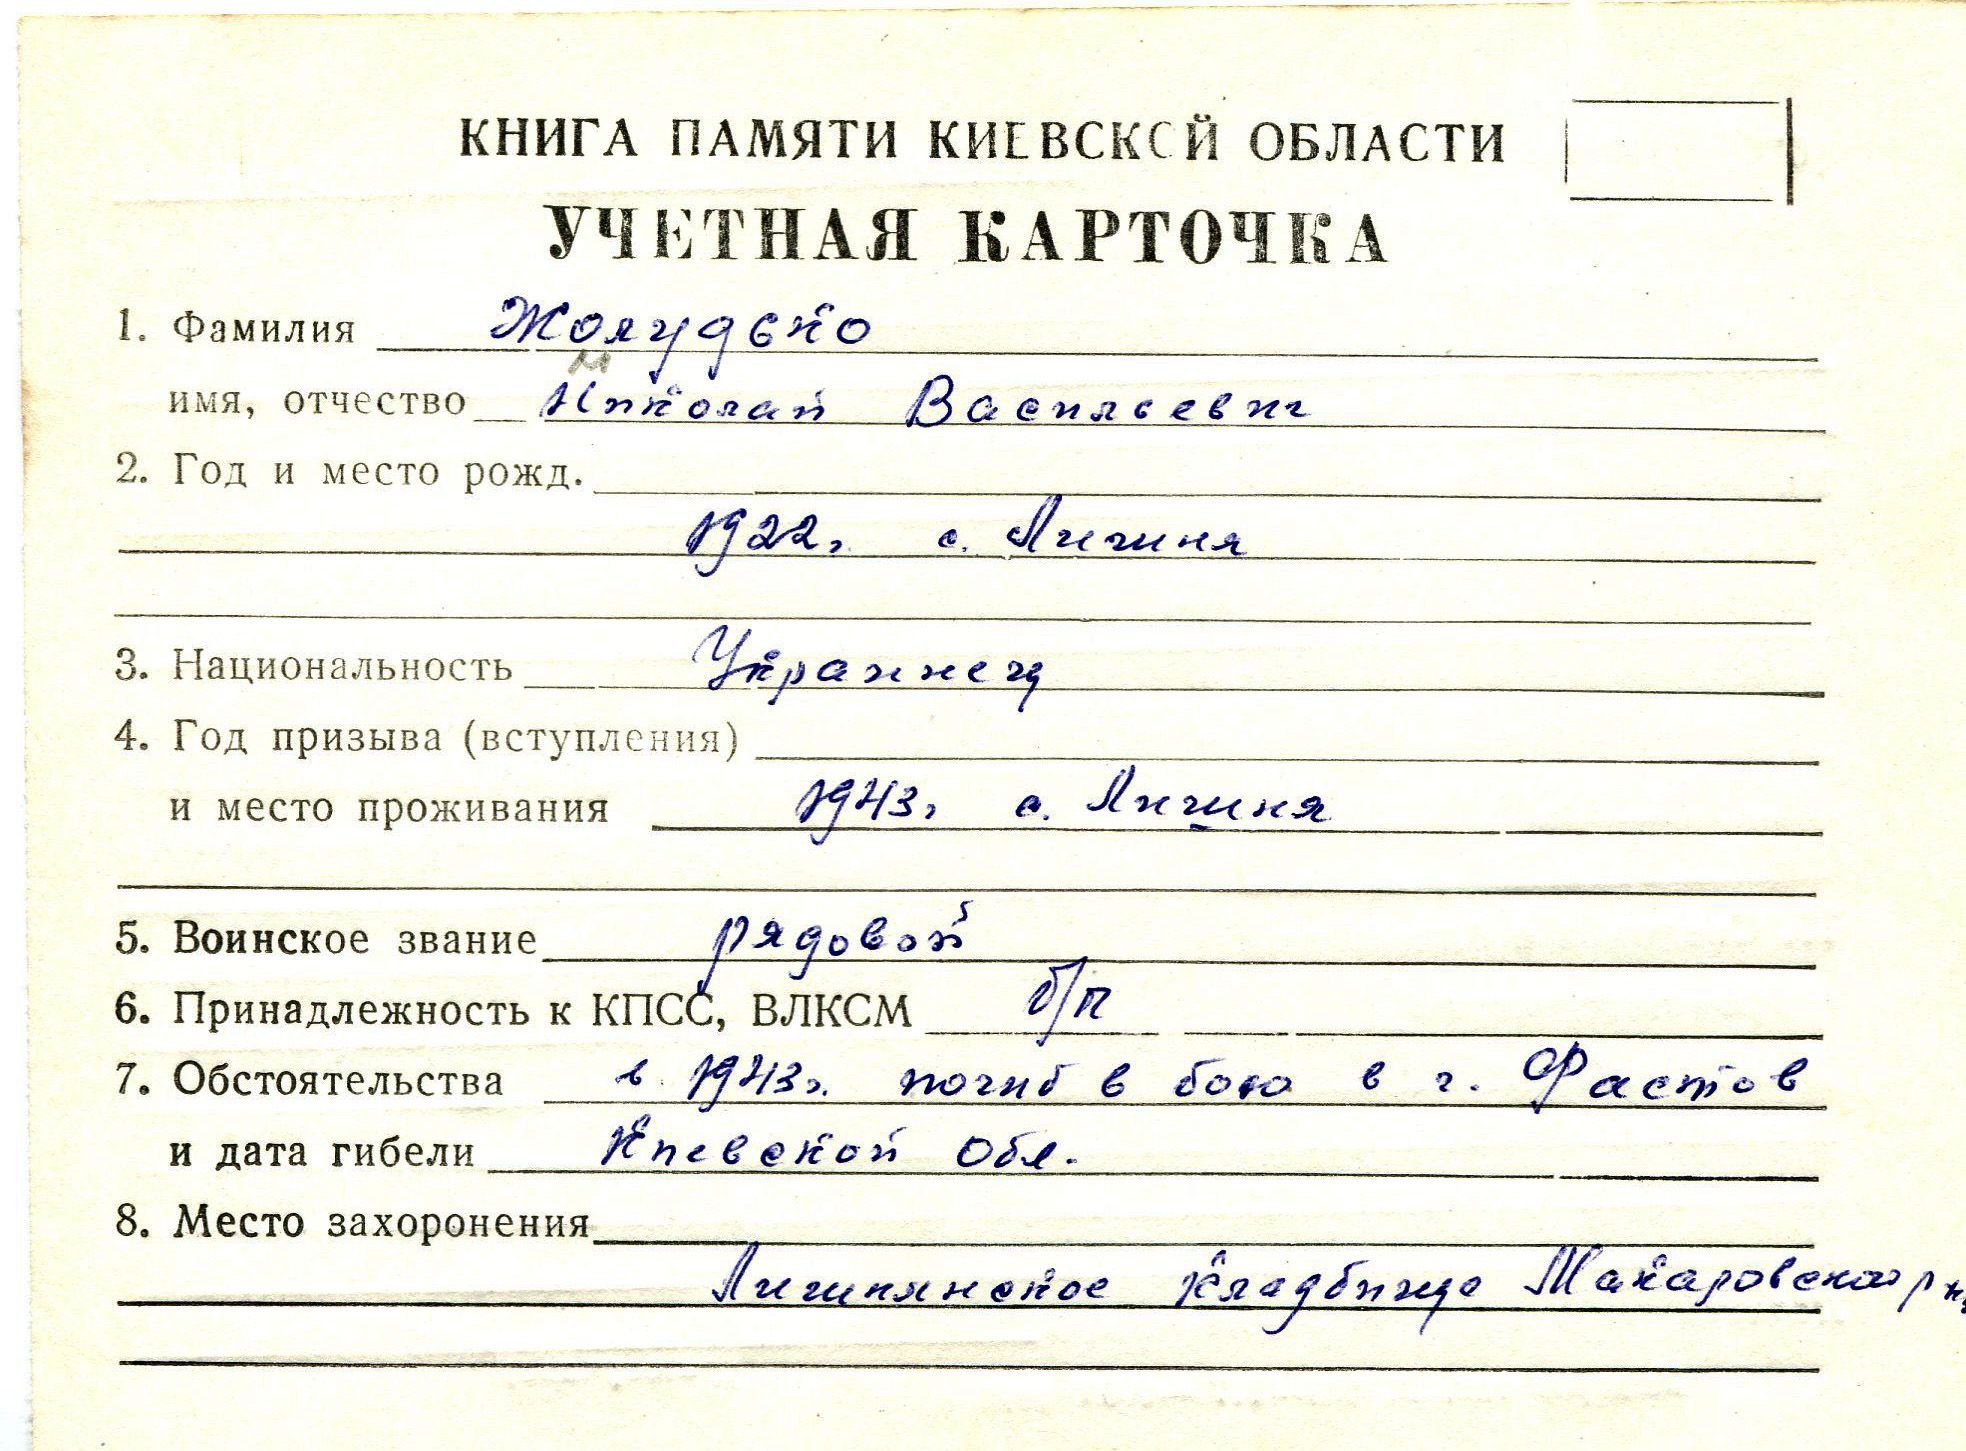 КНИГА ПАМЯТИ КИЕВСКОЙ ОБЛАСТИ
УЧЕТНАЯ КАРТОЧКА
1. Фамилия Жолудько
имя, отчество Николай Васильевич
2. Год и место рожд.
1922г. с. Личиня
3. Национальность Украинец
4. Год призыва (вступления)
и место проживания 1943г с. Личиня
5. Воинское звание рядовой
6. Принадлежность к КПСС, ВЛКСМ б/п
7. Обстоятельства в 1943г. погиб в бою в г. Фастов
и дата гибели Киевской обл.
8. Место захоронения
кладбище Макаровского